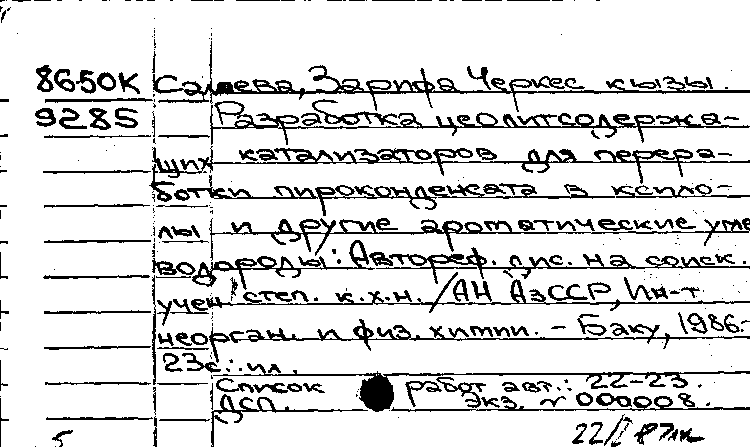 8650К Салаева, Зарифа Черкес кызы.
9285 Разработка цеолитсодержа-
щих катализаторов для перера-
ботки пироконденсата в ксило-
лы и другие ароматические угле
водороды: Автореф. дис. на соиск.
учен. степ. к.х.н. / АН АзССР, Ин-т
неорган. и физ. химии. - Баку, 1986.-
23с.: ил.
Список работ авт.: 22-23.
ДСП. Экз. N 000008.
5